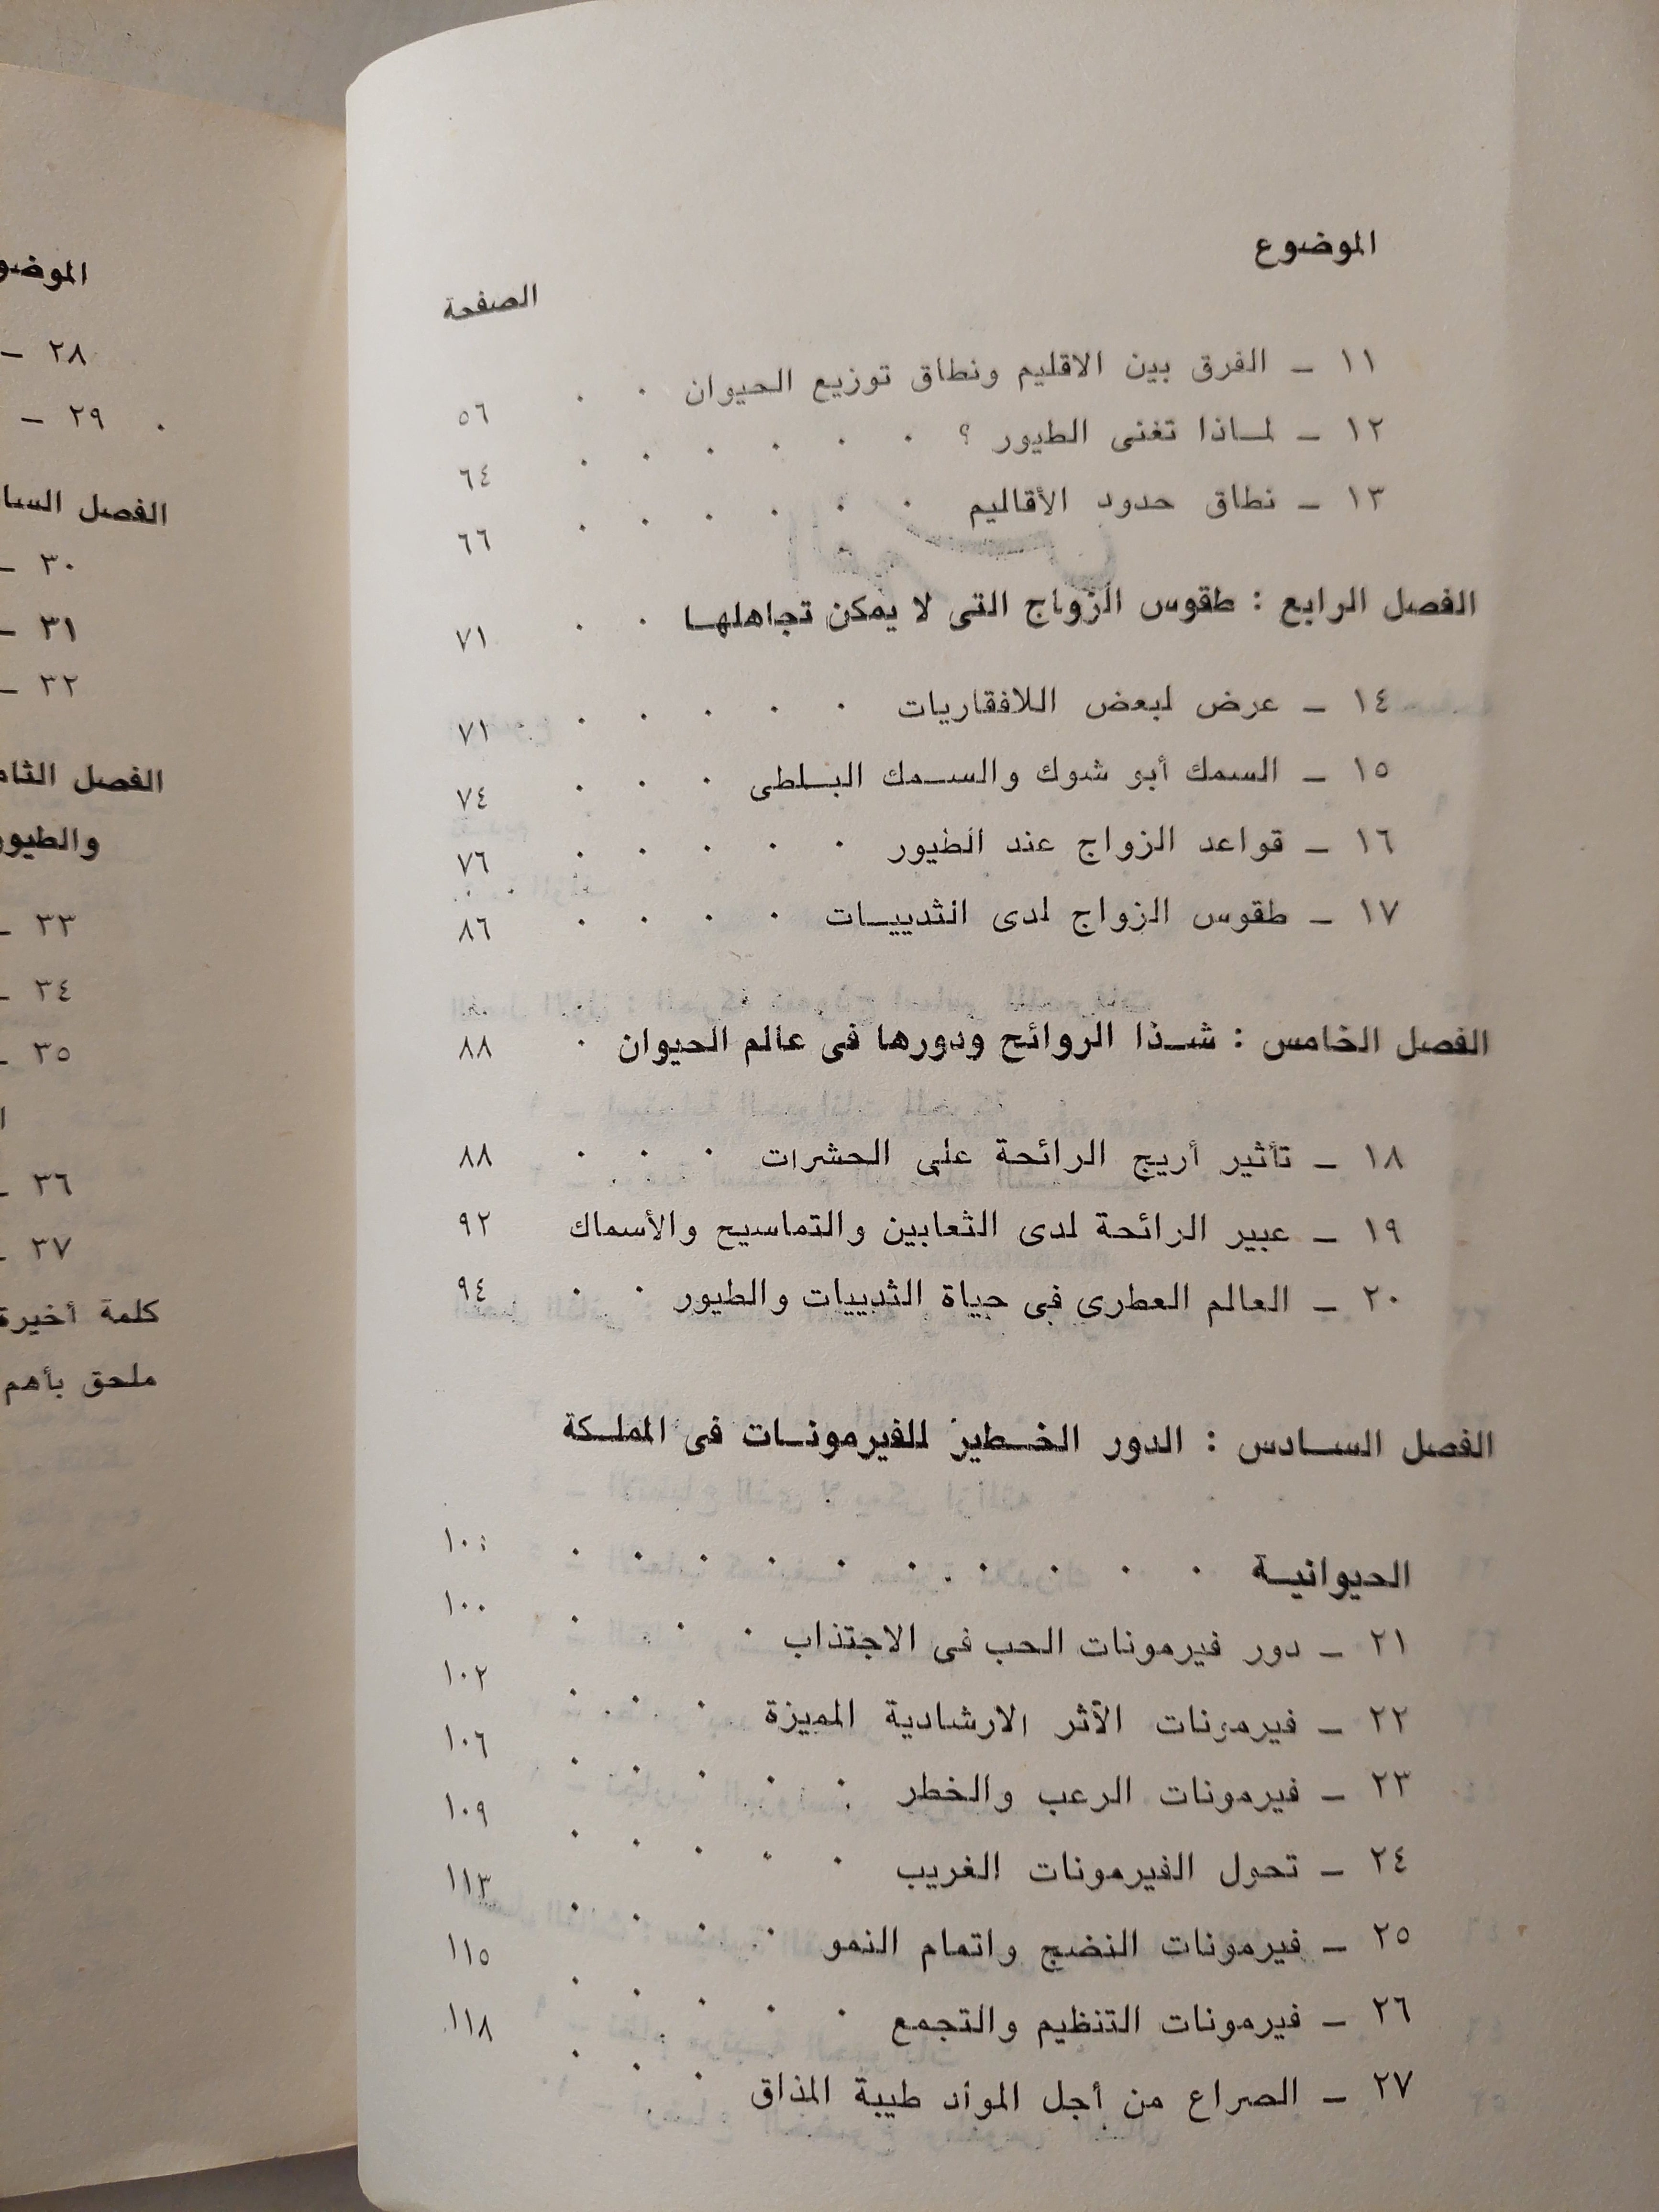 الموضوع
الصفحة
١١ – الفرق بين الاقليم ونطاق توزيع الحيوان . . ٥٦
١٢ – لماذا تغنى الطيور ؟ . . . . . . ٦٤
١٣ – نطاق حدود الأقاليم . . . . . . ٦٦
الفصل الرابع : طقوس الزواج التى لا يمكن تجاهلها . . ٧١
١٤ – عرض لبعض اللافقاريات . . . . . ٧١
١٥ – السمك أبو شوك والسمك البلطى . . . ٧٤
١٦ – قواعد الزواج عند الطيور . . . . . ٧٦
١٧ – طقوس الزواج لدى الثدييات . . . . ٨٦
الفصل الخامس : شذا الروائح ودورها فى عالم الحيوان . ٨٨
١٨ – تأثير أريج الرائحة على الحشرات . . . ٨٨
١٩ – عبير الرائحة لدى الثعابين والتماسيح والأسماك ٩٢
٢٠ – العالم العطرى فى حياة الثدييات والطيور . . ٩٤
الفصل السادس : الدور الخطير للفيرمونات فى المملكة
الحيوانية . . . . . . . . . . ١٠٠
٢١ – دور فيرمونات الحب فى الاجتذاب . . . . ١٠٠
٢٢ – فيرمونات الأثر الارشادية المميزة . . . ١٠٢
٢٣ – فيرمونات الرعب والخطر . . . . . ١٠٦
٢٤ – تحول الفيرمونات الغريب . . . . . ١٠٩
٢٥ – فيرمونات النضج واتمام النمو . . . . ١١٣
٢٦ – فيرمونات التنظيم والتجمع . . . . . ١١٥
٢٧ – الصراع من أجل المواد طيبة المذاق . . . ١١٨
الموضو
٢٨ –
٢٩ –
الفصل السا
٣٠ –
٣١ –
٣٢ –
الفصل الثام
والطيور
٣٣ –
٣٤ –
٣٥ –
٣٦ –
٣٧ –
كلمة أخيرة
ملحق بأهم